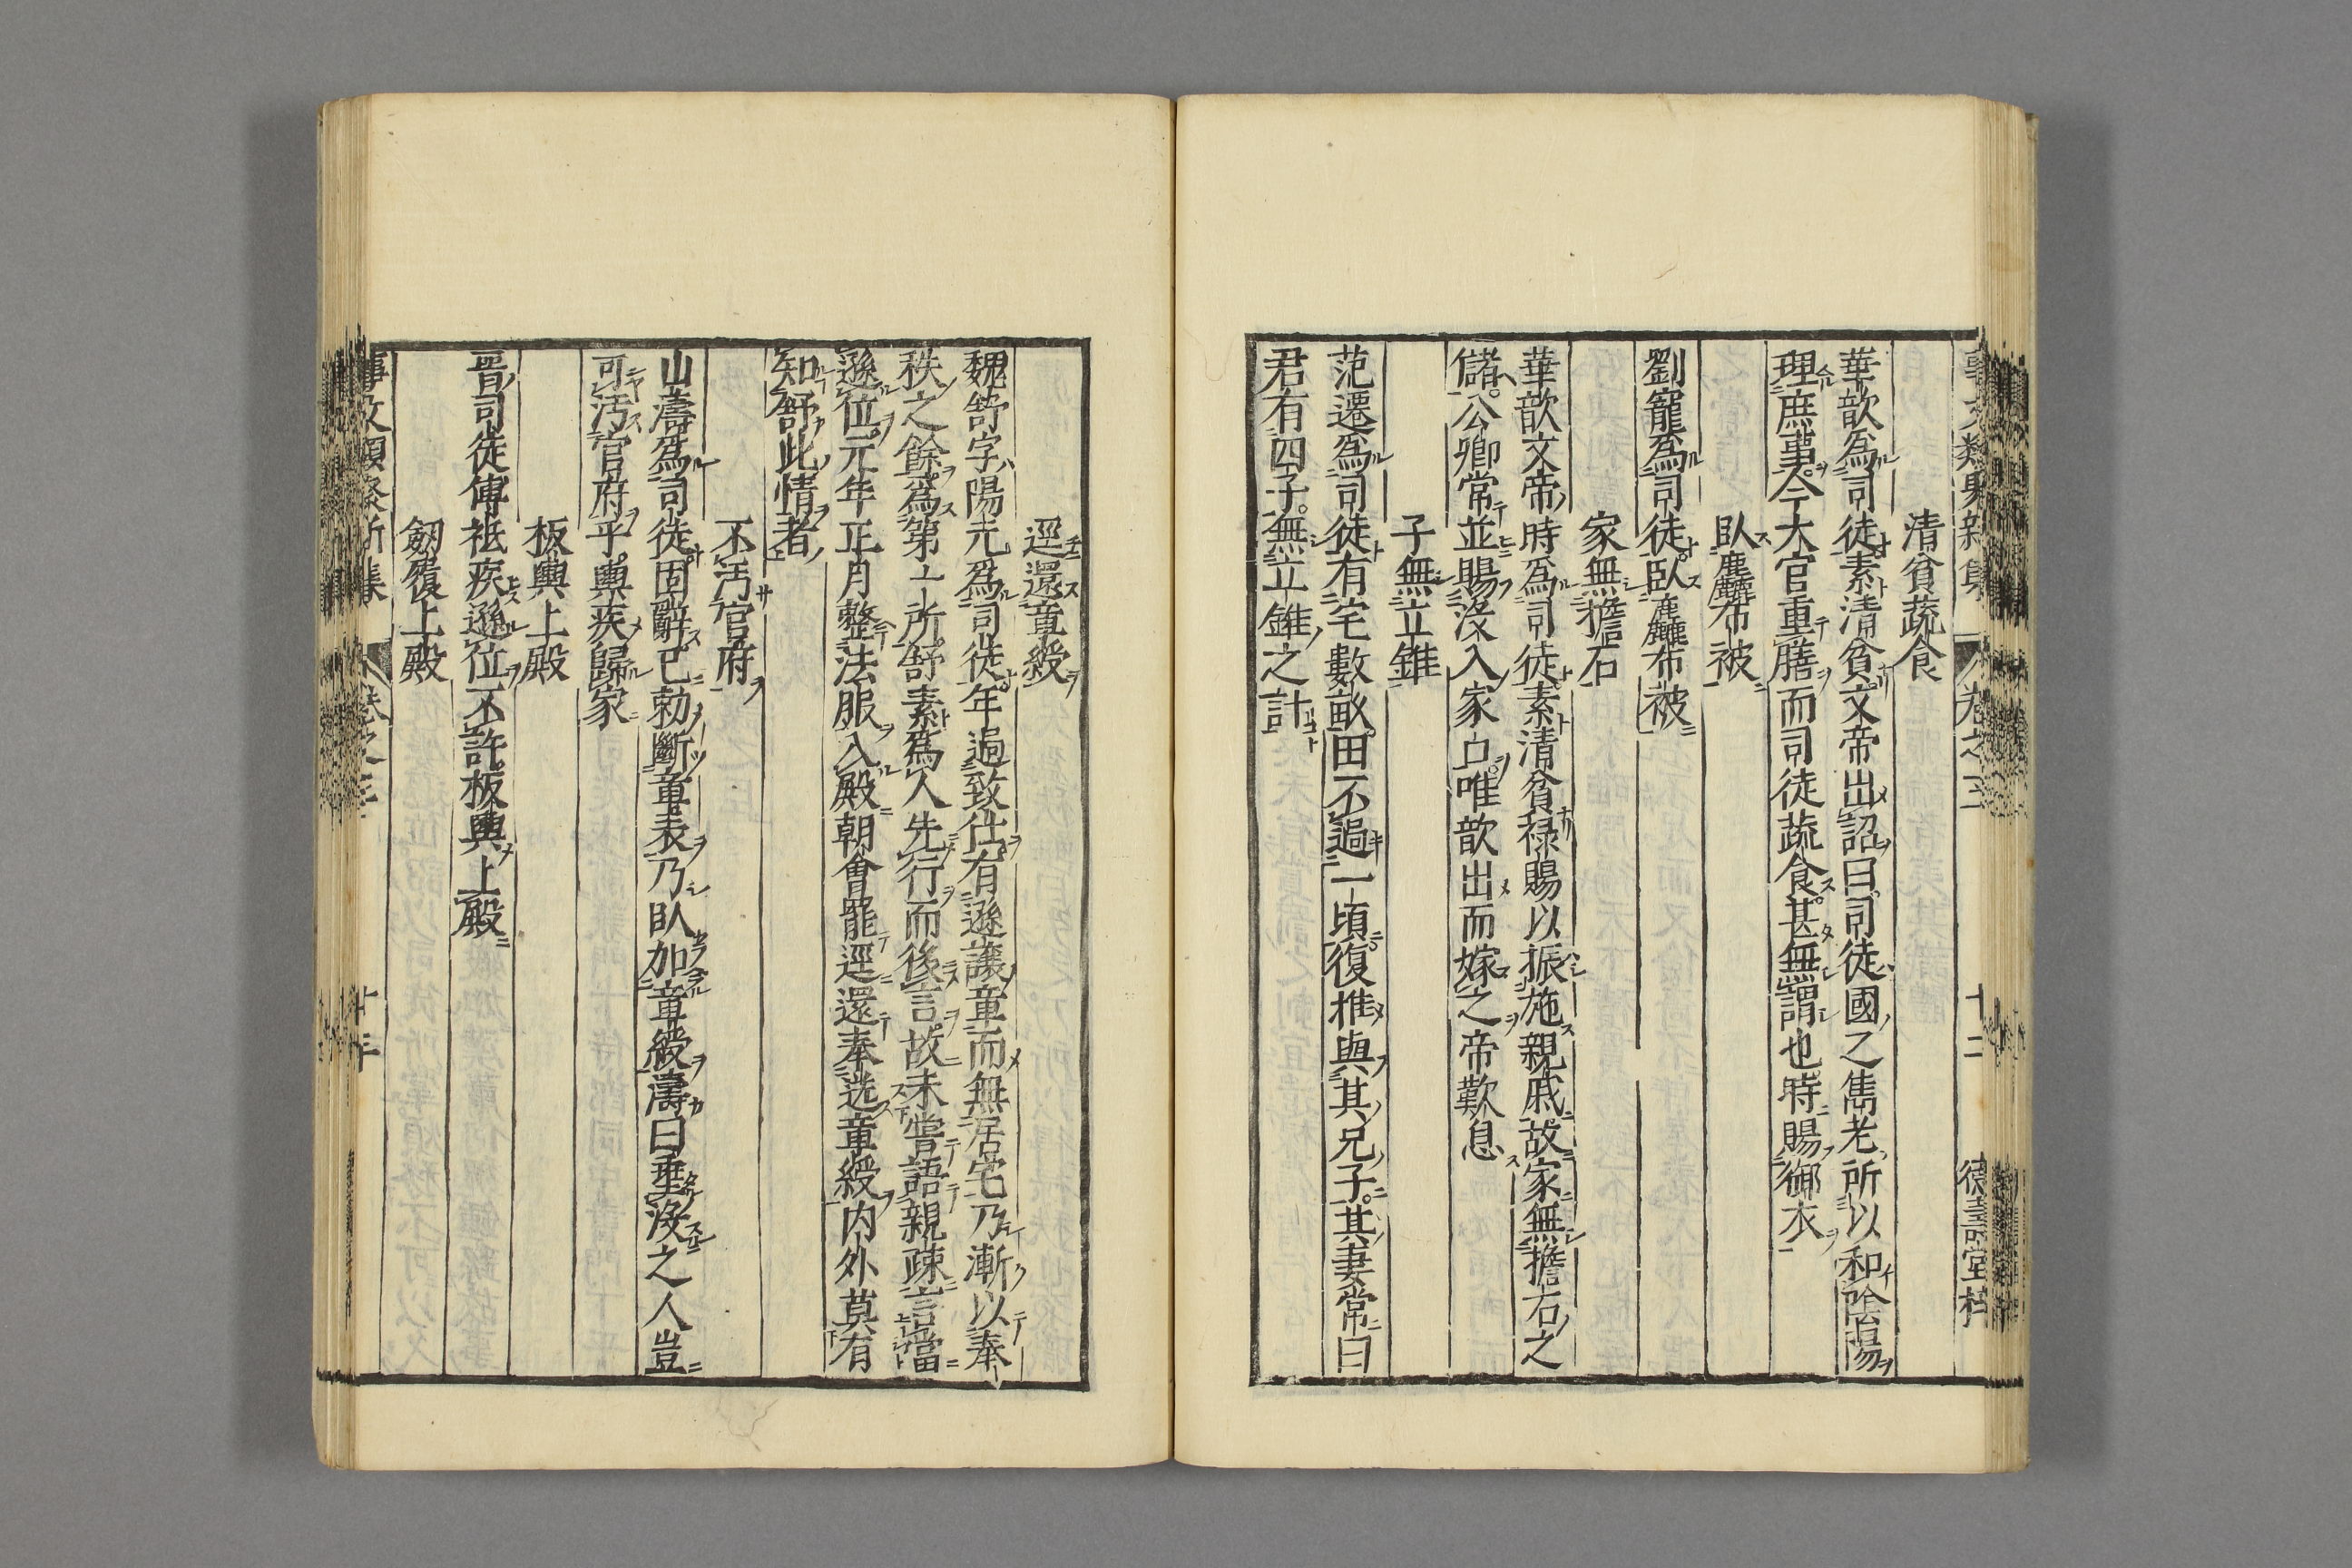 清貧蔬食
華歆爲司徒素清貧文帝出詔曰司徒國之雋老所以和陰陽
理庶事今大官重膳而司徒蔬食甚無謂也時賜御衣
臥麤布被
劉寵爲司徒臥麤布被
家無擔石
華歆文帝時爲司徒素清貧禄賜以振施親戚故家無擔石之
儲公卿常並賜沒入家口唯歆出而嫁之帝歎息
子無立錐
范遷爲司徒有宅數畝田不過一頃復推與其兄子其妻常曰
君有四子無立錐之計
逕還章綬
魏舒字陽元爲司徒年過致仕有遜讓章而無居宅乃漸以奉
秩之餘爲第一所舒素爲人先行而後言故未嘗語親疎言當
遜位元年正月整法服入殿朝會罷逕還奉送章綬内外莫有
知舒此情者
不汚官府
山濤爲司徒固辭已勅斷章表乃臥加章綬濤曰垂沒之人豈
可汚官府乎輿疾歸家
板輿上殿
晋司徒傅祗疾遜位不許板輿上殿
劔履上殿